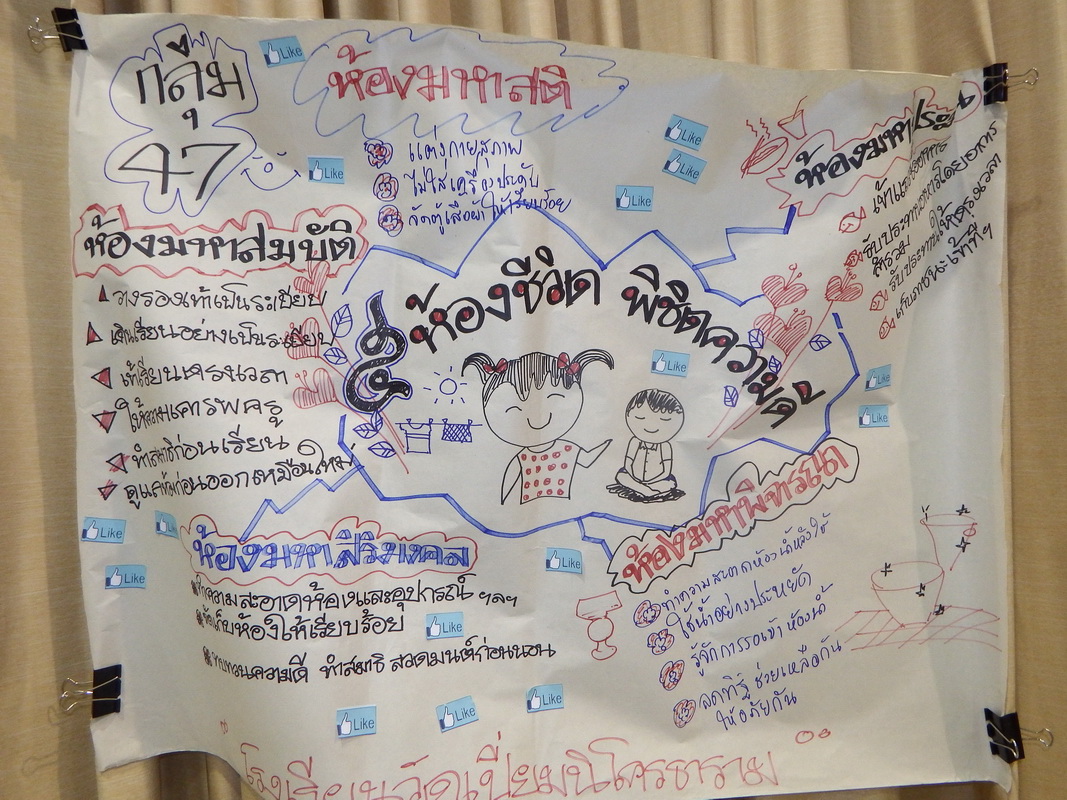 กลุ่ม
47
ห้องมหาสติ
แต่งกายสุภาพ
ไม่ใส่เครื่องประดับ
จัดตู้เสื้อผ้าให้เรียบร้อย
ห้องมหาสมบัติ
วางรองเท้าเป็นระเบียบ
เดินเรียนอย่างเป็นระเบียบ
เข้าเรียนตรงเวลา
ให้ความเคารพครู
ทำสมาธิก่อนเรียน
ดูแลห้องก่อนออกเหมือนใหม่
๕ ห้องชีวิต พิชิตความดี
ห้องมหา
รับประทานอาหารโดยอาการ
สำรวม
รับประทานให้ตรงเวลา
เก็บภาชนะเข้าที่ฯ
ห้องมหาสิริมงคล
ทำความสะอาดห้องและอุปกรณ์ ฯลฯ
จัดเก็บห้องให้เรียบร้อย
ทบทวนความดี ทำสมาธิ สวดมนต์ก่อนนอน
ห้องมหาพิจารณา
ทำความสะอาดห้องน้ำหลังใช้
ใช้น้ำอย่างประหยัด
รู้จักการรอเข้าห้องน้ำ
ลดทิฐิ ช่วยเหลือกัน
ให้อภัยกัน
โรงเรียนวัดเปี่ยมนิโครธาราม
Like
Like
Like
Like
Like
Like
Like
Like
Like
Like
Like
Like
Like
Like
Like
Like